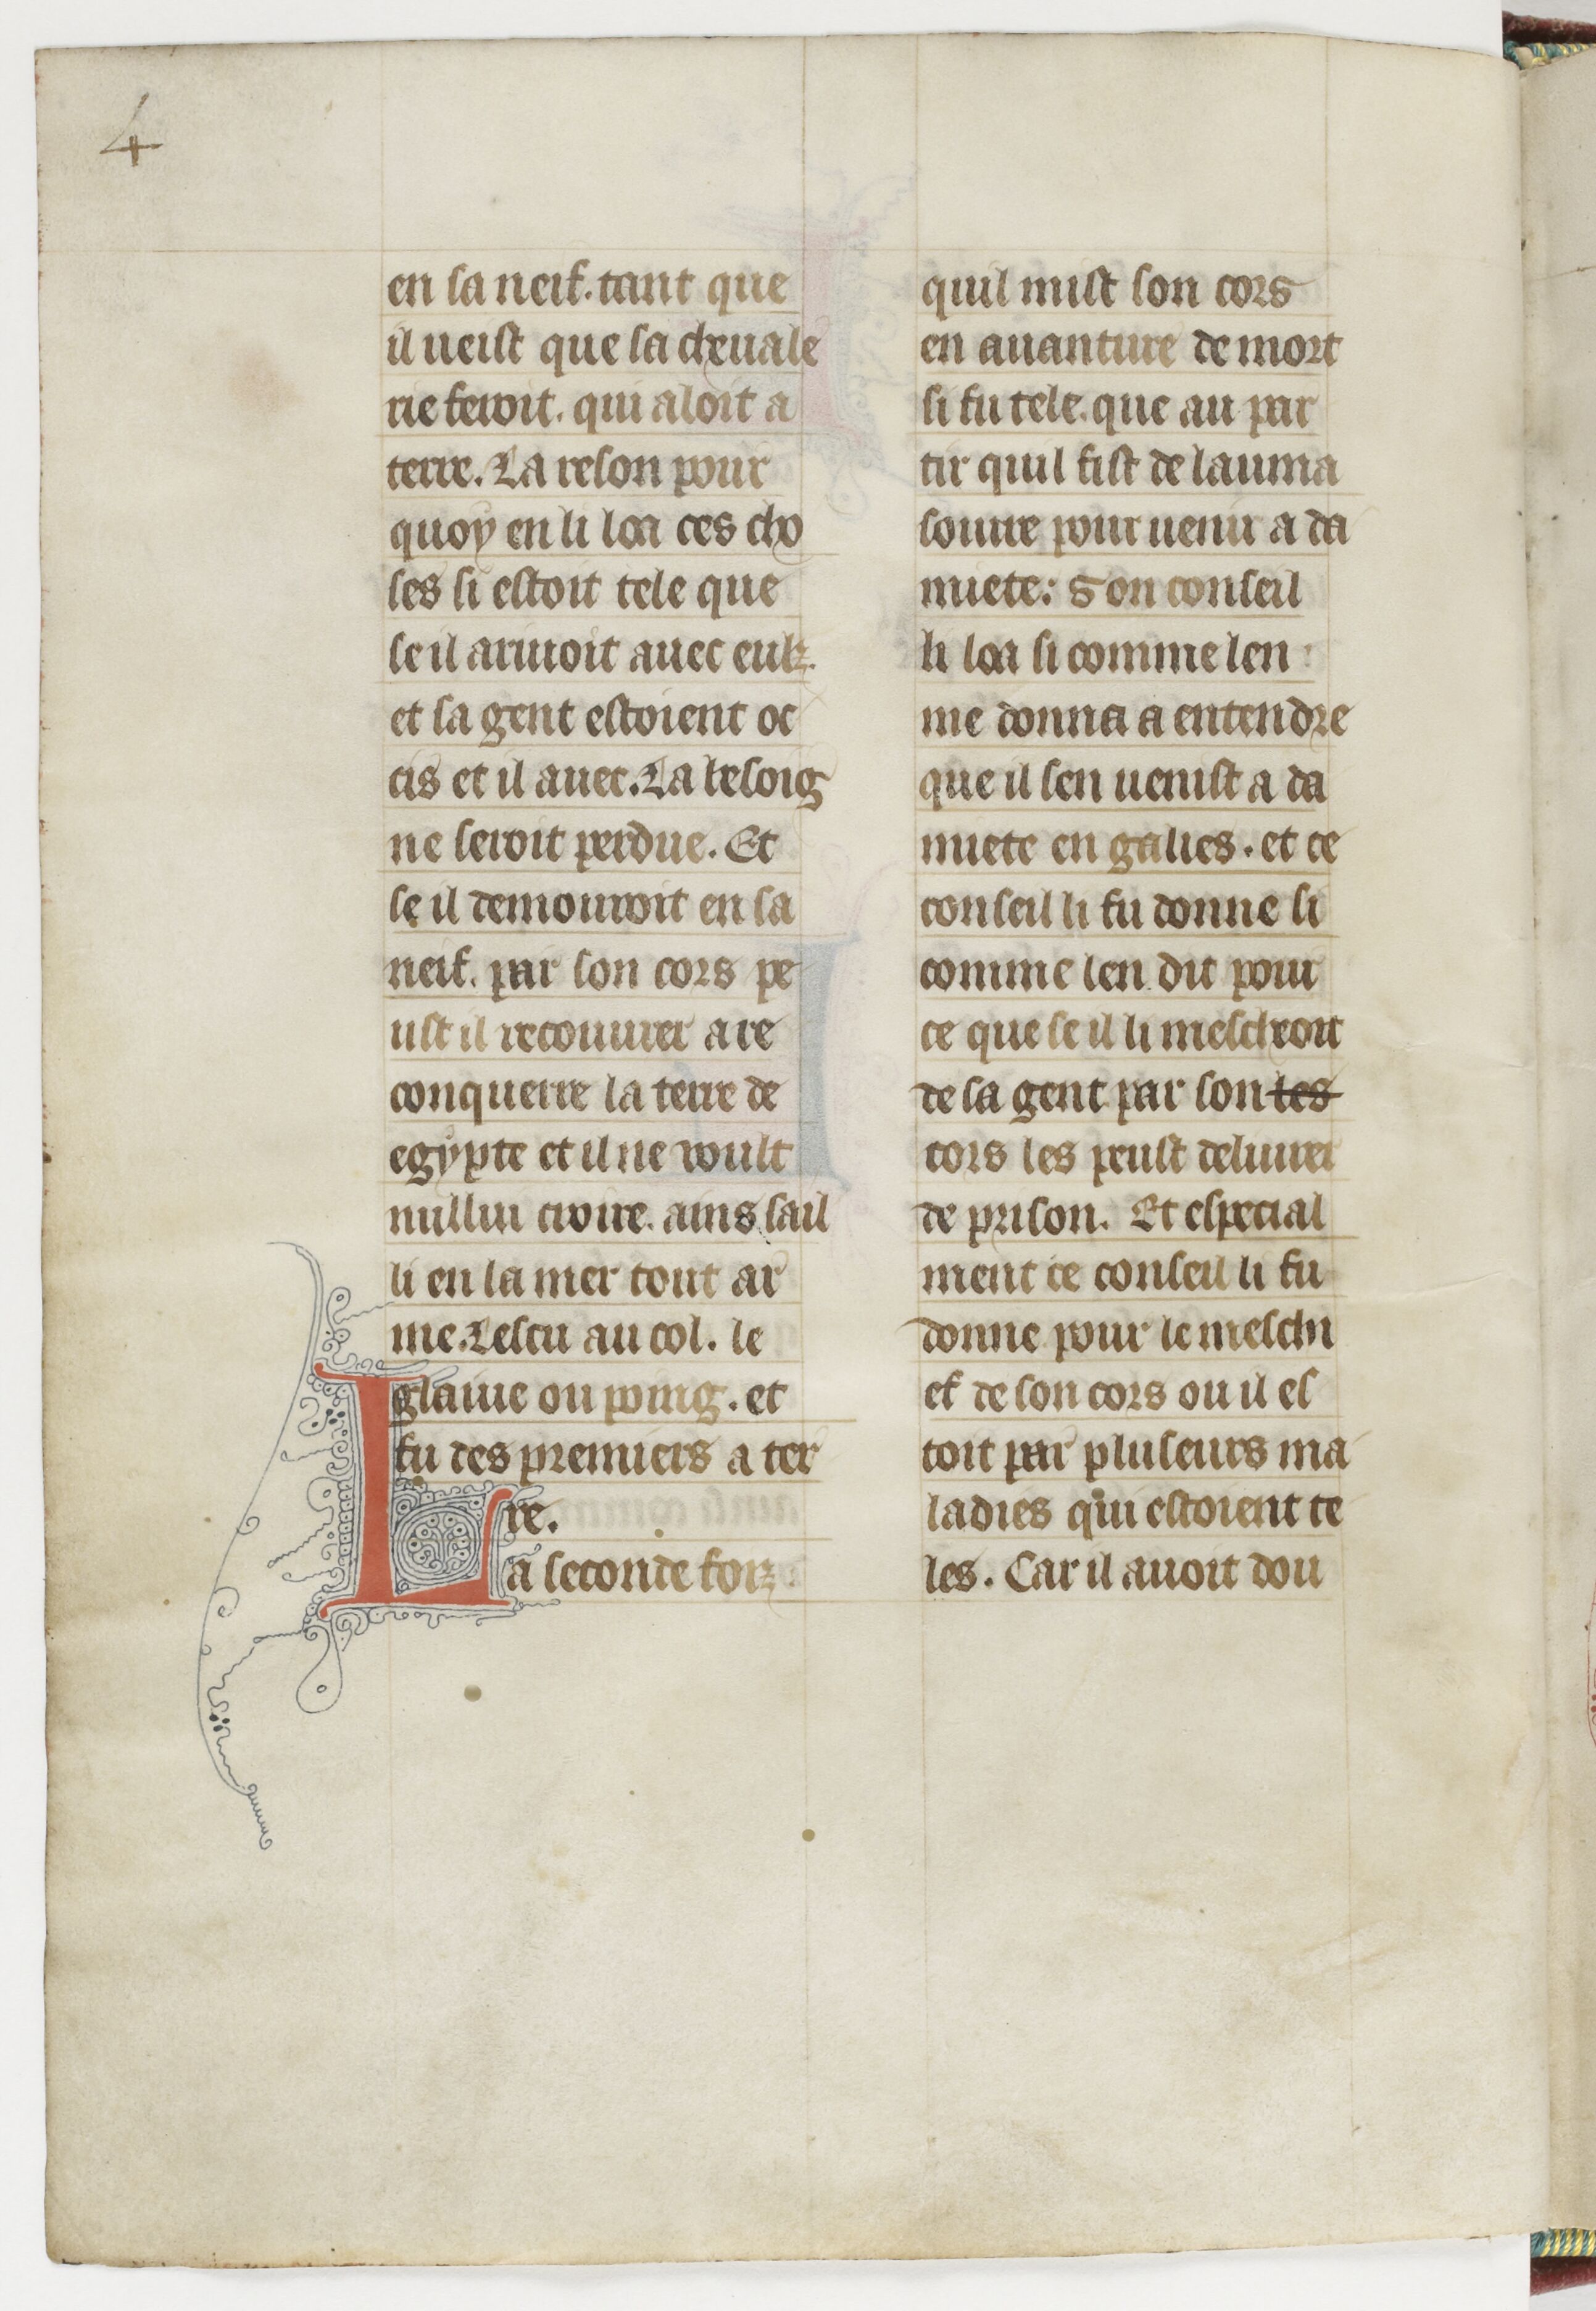 4
en sa neif. tant que
il ueist que sa cheuale
rie feroit. qui aloit a
terre. La reson pour
quoy en li loa ces cho
ses si estoit tele que
se il arriuoit auec eulz.
et sa gent estoient oc
cis et il auec. La besoig
ne seroit perdue. Et
se il demouroit en sa
neif. par son cors pe
ust il recouurer a re
conquerre la terre de
egypte et il ne voult
nullui croire. ains sail
li en la mer tout ar
me. Lescu au col. le
glaiue ou poing. et
fu des premiers a ter
re.
La seconde foiz
quil mist son cors
en auanture de mort
si fu tele. que au par
tir quil fist de lauma
sourre pour uenir a da
miete: Son conseil
li loa si comme len
me donna a entendre
que il sen uenist a da
miete en galies. et ce
conseil li fu donne si
comme len dit pour
ce que se il li mescheoit
de sa gent par son les
cors les peust deliurer
de prison. Et especial
ment ce conseil li fu
donne pour le meschi
ef de son cors ou il es
toit par pluseurs ma
ladies qui estoient te
les. Car il auoit dou